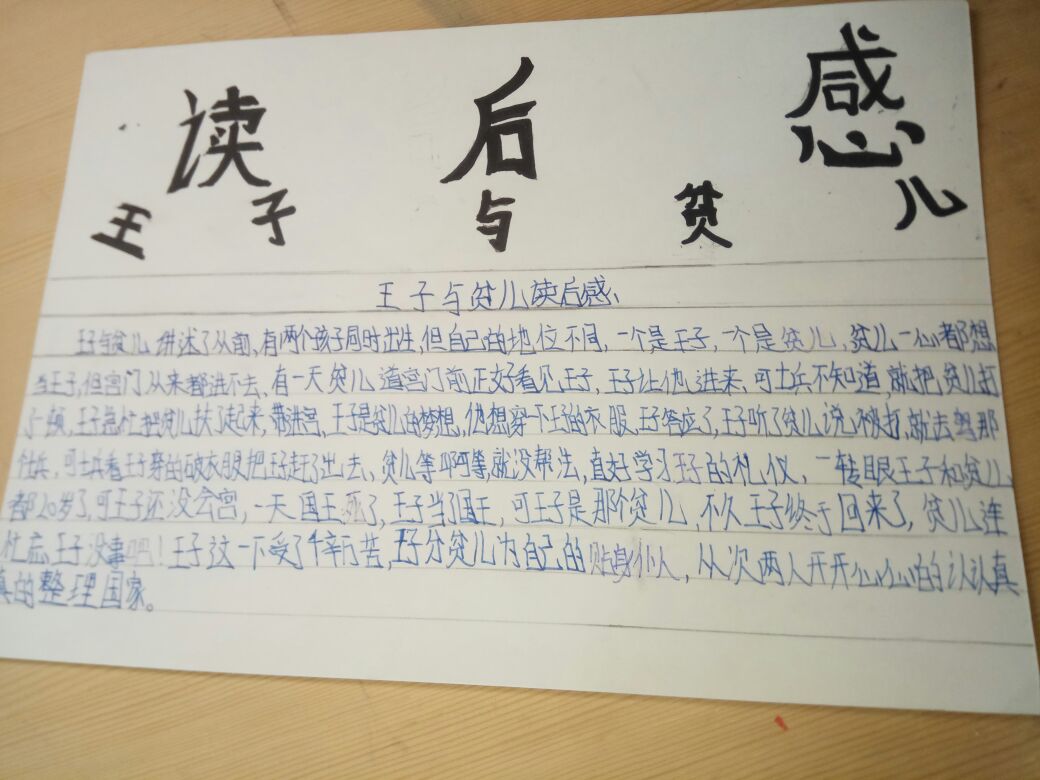 读后感
王子与贫儿
王子与贫儿读后感
王子与贫儿讲述了从前,有两个孩子同时出生,但自己的地位不同,一个是王子,一个是贫儿,贫儿一心都想
当王子,但宫门从来都进不去,有一天贫儿道宫门前,正好看见王子,王子让他进来,可士兵不知道,就把贫儿打
了一顿,王子急忙把贫儿扶了起来,带进宫,王子是贫儿的梦想,他想穿下王子的衣服,王子答应了,王子听了贫儿说被打,就去骂那
个士兵,可士兵看王子穿的破衣服把王子赶了出去、贫儿等啊等,就没帮法,直好学习王子的礼仪,一转眼王子和贫儿
都20岁了,可王子还没会宫,一天国王死了,王子当了国王,可王子是那个贫儿,不久王子终于回来了,贫儿连
忙忘,王子没事吧!王子这一下受了千辛万苦,王子分贫儿为自己的贴身仆人,从次两人开开心心的认认真
真的整理国家。